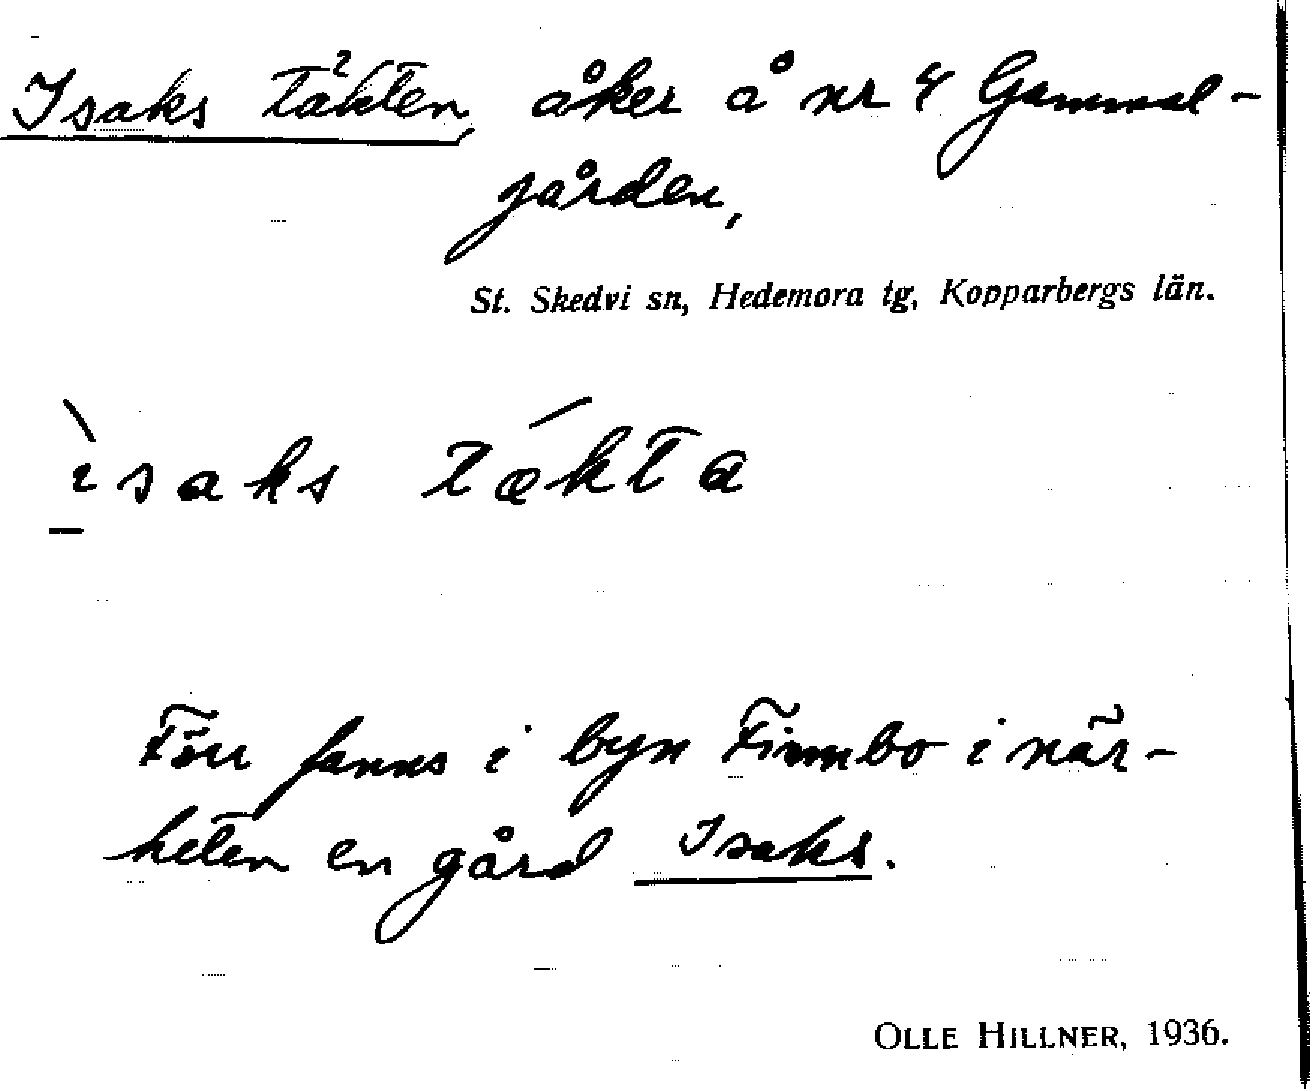 Isaks täkten, åker å nr 4 Gammel-
gården,
St. Skedvi sn, Hedemora tg, Kopparbergs län.
ìsaks tǽkta
Förr fanns i byn Finnbo i när-
heten en gård Isaks.
OLLE HILLNER, 1936.